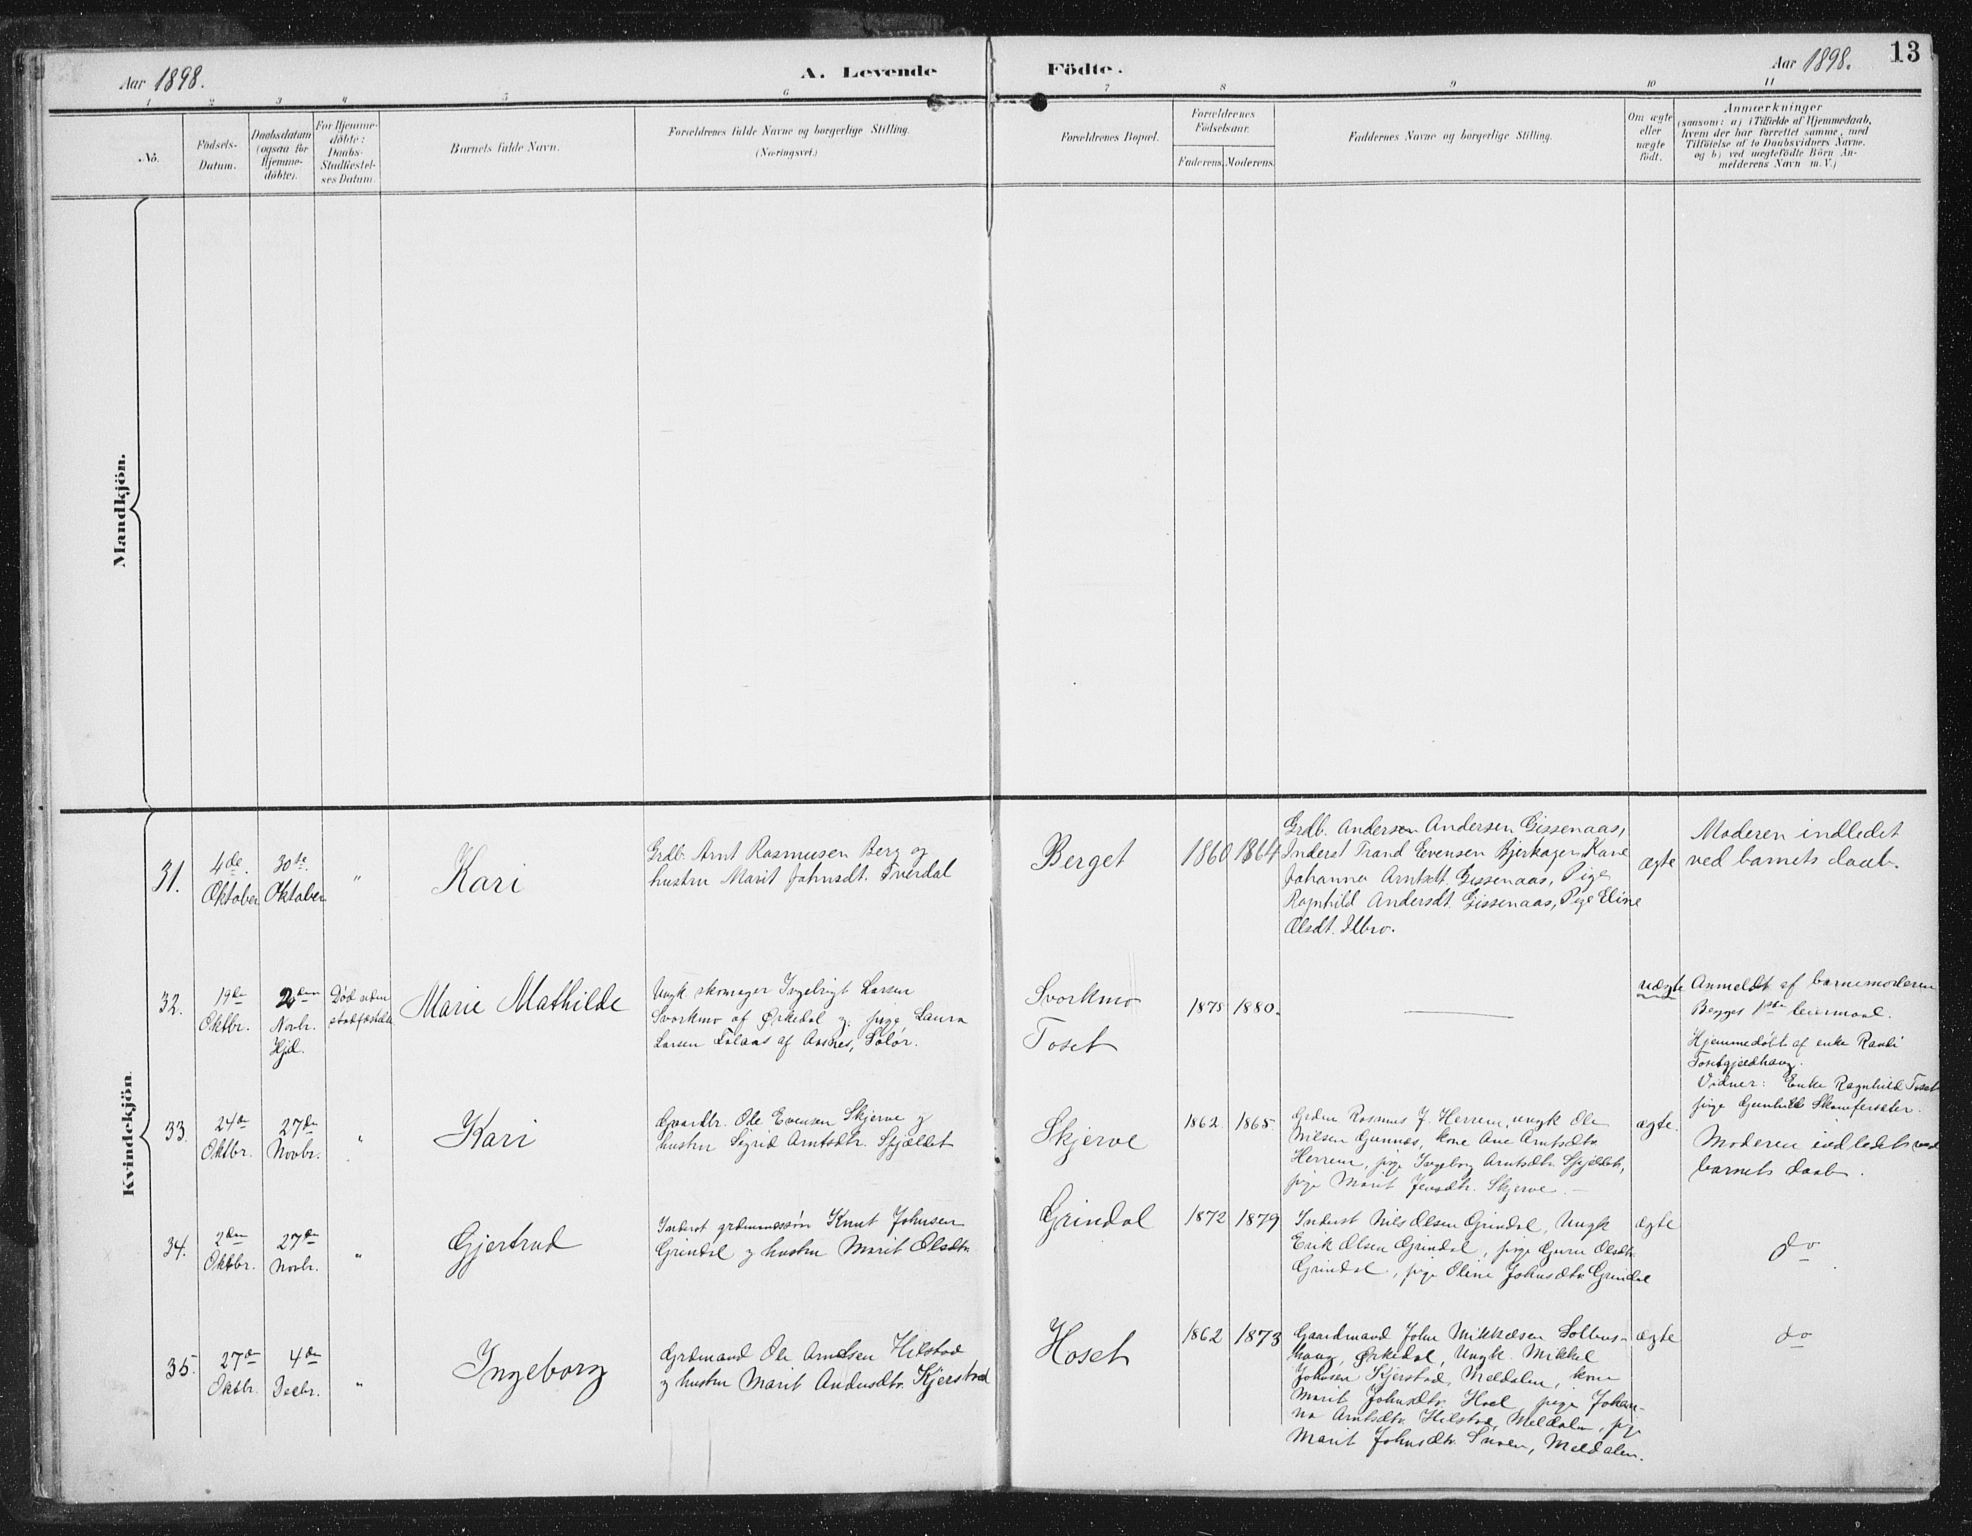 Aar 1898.
A. Levende Födte.
Aar 1898.
13
1 2 3 4 5 6 7 8 9 10 11
No.
Födsels-
Datum.
Daabsdatum
(ogsaa for
Hjemme-
döbte).
For Hjemme-
döbte:
Daabs-
Stadfæstel-
ses Datum.
Barnets fulde Navn.
Forældrenes fulde Navne og borgerlige Stilling.
(Næringsvei.)
Forældrenes Bopæl.
Forældrenes
Födselsaar.
Faderens.
Moderens.
Faddernes Navne og borgerlige Stilling.
Om ægte
eller
uægte
födt.
Anmærkninger
(saasom: a) i Tilfælde af Hjemmedaab,
hvem der har forrettet samme, med
Tilföielse af to Daabsvidners Navne.
og b) ved uægtefödte Börn An-
melderens Navn m. V.)
Mandkjön.
Kvindekjön.
31.
4de
Oktober
30te
Oktober
"
Kari
Grdb. Arnt Rasmusen Berg og
hustru Marit Johnsdt. Tverdal
Berget
1860
1864
Grdb. Andersen Andersen Gissenaas,
Inderst Trand Evensen Bjerkager, Kone
Johanna Arntsdt. Gissenaas, Pige
Ragnhild Andersdt. Gissenaas, Pige Eline
Olsdt. Ilbro.
ægte
Moderen indledet
ved barnets daab.
32.
19de
Oktbr.
2den
Novbr.
Hjd.
Död uden
stadfæstelse
Marie Mathilde
Ungk skomager Ingebrigt Larsen
Svorkmo af Ørkedal og pige Laura
Larsen af Aasnes, Solør.
Svorkmo
Toset
1875
1880.
uægte
Anmeldt af barnemoderen
Begges 1ste leiermaal.
Hjemmedøbt af enke Randi
Vidner: Enke Ragnhild Toset
pige Gunhild
33.
24de
Oktbr.
27de
Novbr.
"
Kari
Gaardbr. Ole Evensen Skjerve og
hustru Sigrid Arntsdtr. Spjeldet
Skjerve
1862
1865
Grdm Rasmus J. Herrem, ungk Ole
Nilsen Gunnes, kone Ane Arntsdtr.
Herrem, pige Ingeborg Arntsdtr. Spjeldet,
pige Marit Jensdtr. Skjerve. —
ægte.
Moderen indledet ved
barnets daab.
34.
2den
Oktbr.
27de
Novbr.
"
Gjertrud
Inderst grdmandssøn Knut Johnsen
Grindal og hustru Marit Olsdtr.
Grindal
1872
1879
Inderst Nils Olsen Grindal, Ungk
Erik Olsen Grindal, pige Guru Olsdtr.
Grindal, pige Oline Johnsdtr. Grindal
ægte
do
35.
27de
Oktbr.
4de
Decbr.
"
Ingeborg
Grdmand Ole Arntsen Hilstad
og hustru Marit Andersdtr. Kjerstad
Hoset
1862
1873
Gaardmand John Mikkelsen Solbus-
haug, Ørkedal, Ungk. Mikkel
Johnsen Kjerstad, Meldalen, kone
Marit Johnsdtr. Hoel, pige Johan-
na Arntsdtr. Hilstad, Meldalen, pige
Marit Johnsdtr. Meldalen.
ægte
do